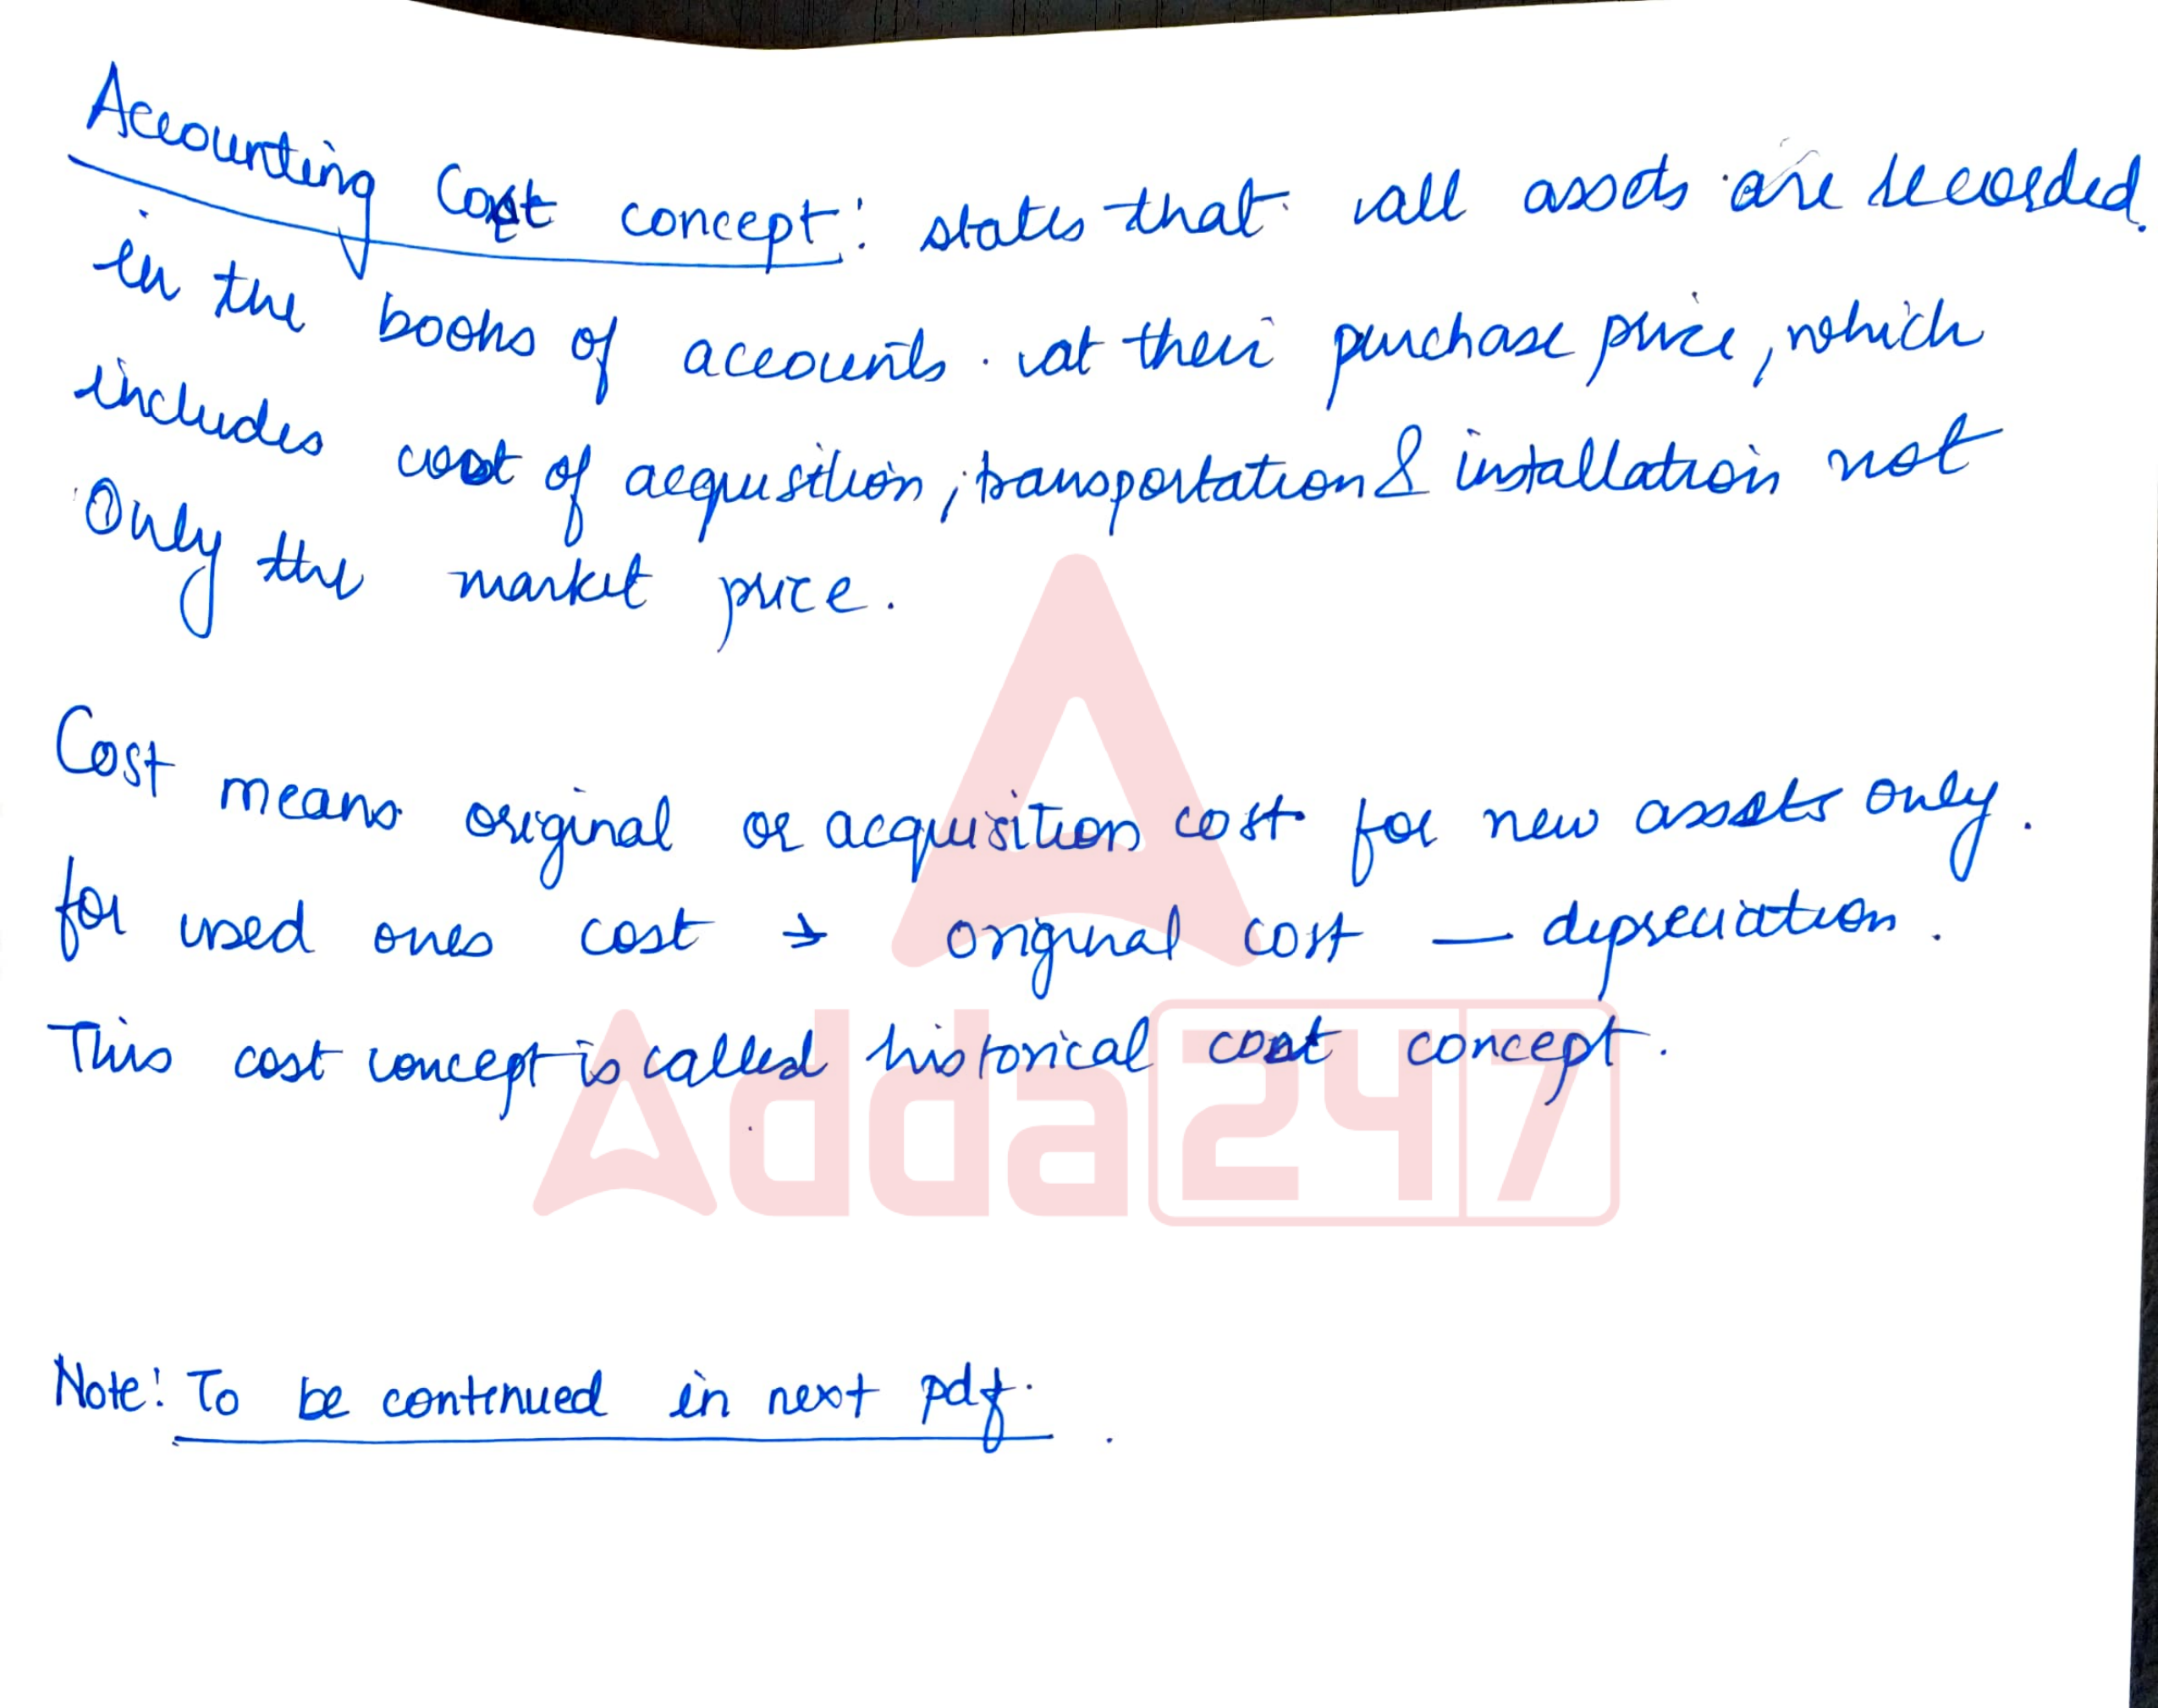 Accounting Cost concept: states that all assets are recorded
in the books of accounts at their purchase price, which
includes cost of acqusition, transportation & installation not
Only the market price.
Cost means original or acquisition cost for new assets only.
for used ones cost → original cost — depreciation.
This cost concept is called historical cost concept.
Adda247
Note: To be continued in next pdf.